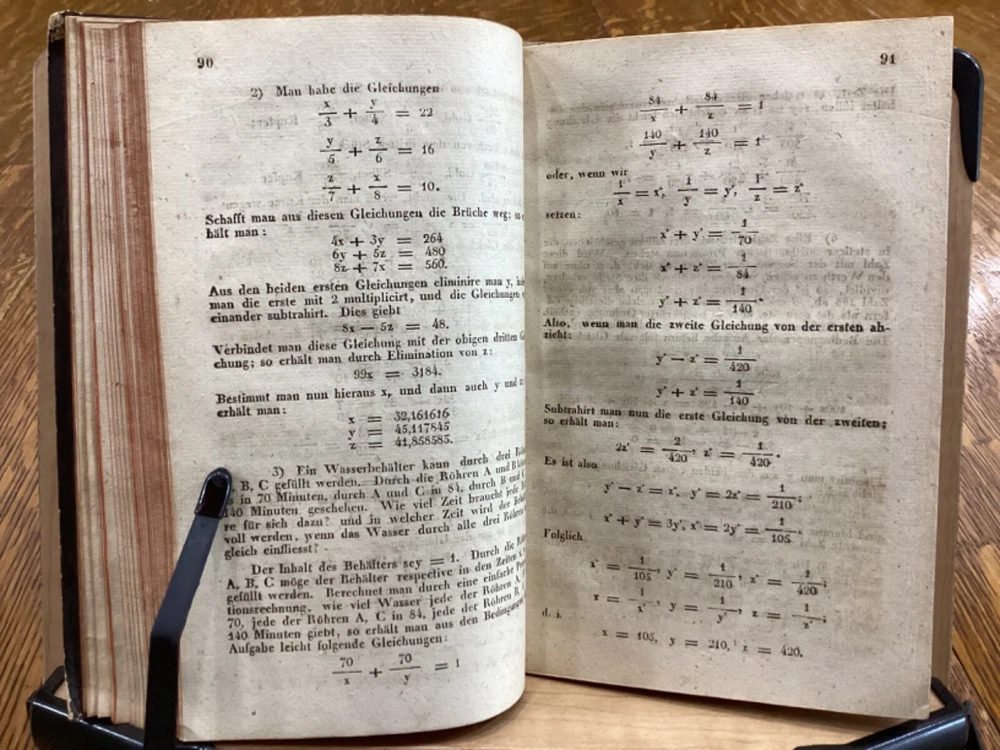 90
2) Man habe die Gleichungen
x/3 + y/4 = 22
y/5 + z/6 = 16
z/7 + x/8 = 10.
Schafft man aus diesen Gleichungen die Brüche weg; so
hält man:
4x + 3y = 264
6y + 5z = 480
8z + 7x = 560.
Aus den beiden ersten Gleichungen eliminire man y,
man die erste mit 2 multiplicirt, und die Gleichungen
einander subtrahirt. Dies giebt
8x — 5z = 48.
Verbindet man diese Gleichung mit der obigen dritten
chung; so erhält man durch Elimination von z:
99x = 3184.
Bestimmt man nun hieraus x, und dann auch y und z
erhält man:
x = 32,161616
y = 45,117845
z = 41,858585.
3) Ein Wasserbehälter kann durch drei
B, C gefüllt werden. Durch die Röhren A und B
s in 70 Minuten, durch A und C in 84, durch B und
140 Minuten geschehen. Wie viel Zeit braucht jede
re für sich dazu? und in welcher Zeit wird der
voll werden, wenn das Wasser durch alle drei Röhren
gleich einfliesst?
Der Inhalt des Behälters sey = 1. Durch die
A, B, C möge der Behälter respective in den Zeiten
gefüllt werden. Berechnet man durch eine einfache
tionsrechnung, wie viel Wasser jede der Röhren A,
70, jede der Röhren A, C in 84, jede der Röhren B,
140 Minuten giebt, so erhält man aus den
Aufgabe leicht folgende Gleichungen:
70/x + 70/y = 1
91
84/x + 84/z = 1
140/y + 140/z = 1
oder, wenn wir
1/x = x', 1/y = y', 1/z = z'
setzen:
x' + y' = 1/70
x' + z' = 1/84
y' + z' = 1/140.
Also, wenn man die zweite Gleichung von der ersten ab-
zieht:
y' — z' = 1/420
y' + z' = 1/140
Subtrahirt man nun die erste Gleichung von der zweiten;
so erhält man:
2z' = 2/420, z' = 1/420.
Es ist also
y' — z' = z', y' = 2z' = 1/210;
x' + y' = 3y', x' = 2y' = 1/105.
Folglich
x' = 1/105, y' = 1/210, z' = 1/420;
x = 1/x', y = 1/y', z = 1/z';
d. i.
x = 105, y = 210, z = 420.